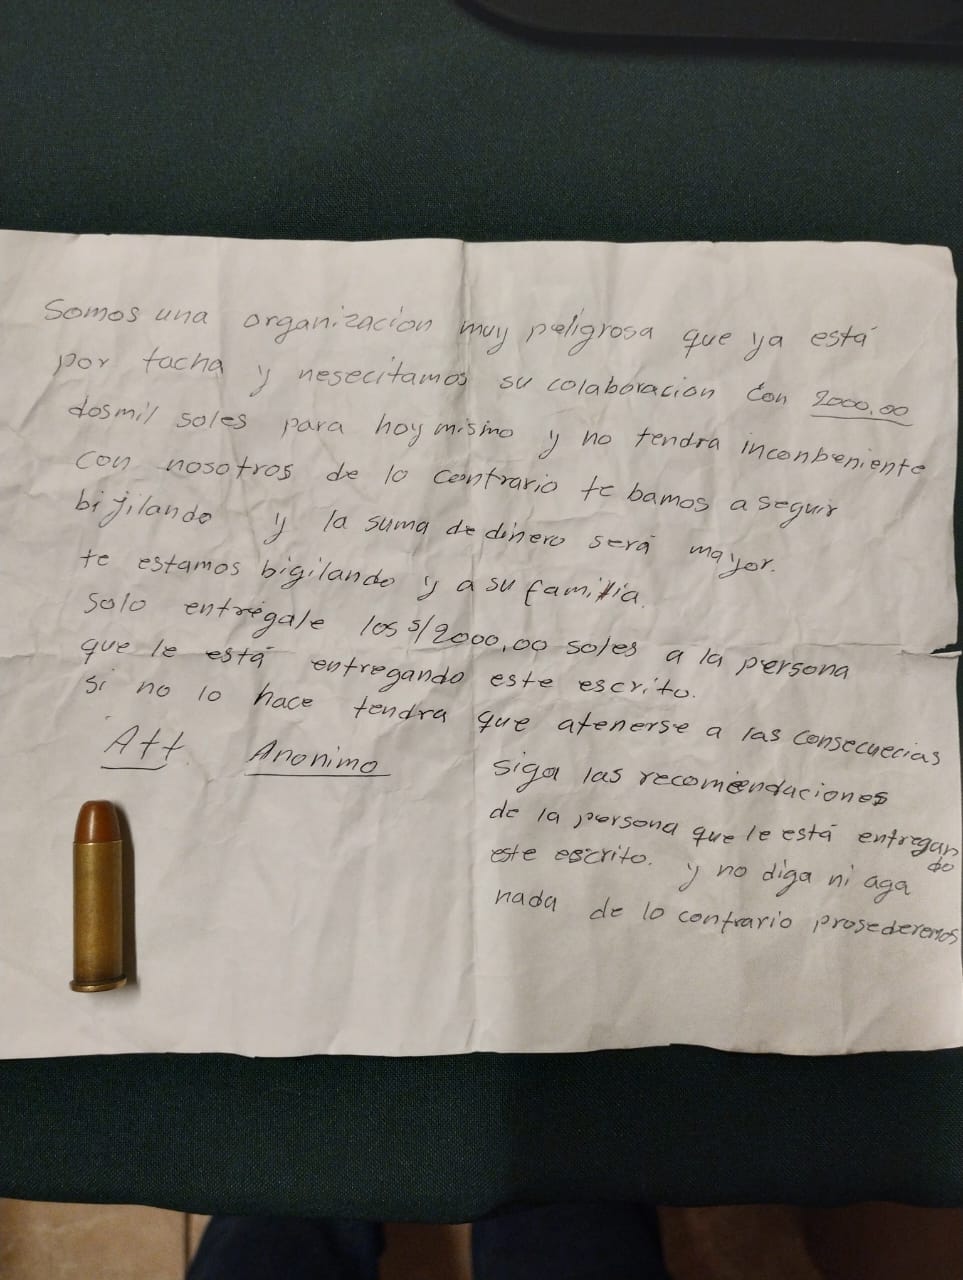 Somos una organizacion muy peligrosa que ya está
por tacha y nesecitamos su colaboracion con 2000.00
dosmil soles para hoy mismo y no tendra inconbeniente
con nosotros de lo contrario te bamos a seguir
bijilando y la suma de dinero será mayor.
te estamos bigilando y a su familia.
solo entrégale los s/2000,00 soles a la persona
que le está entregando este escrito.
si no lo hace tendra que atenerse a las consecuecias
Att. Anonimo
siga las recomendaciones
de la persona que le está entregando
este escrito. y no diga ni aga
nada de lo contrario prosederemos